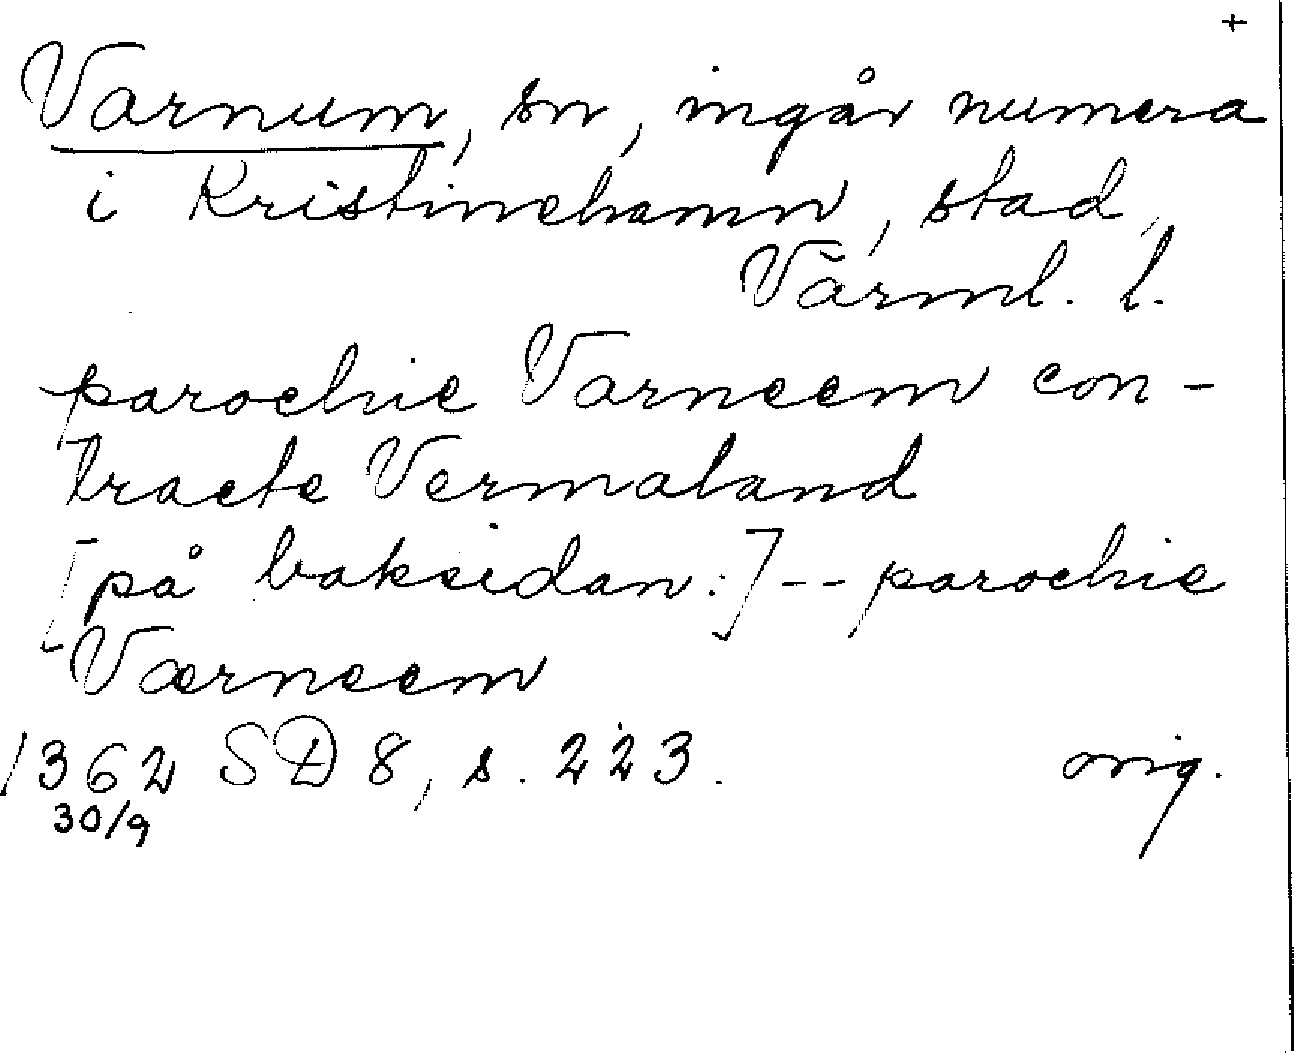 +
Varnum, sn, ingår numera
i Kristinehamn, stad,
Värml. l.
parochie Varneem con-
tracte Vermaland
[på baksidan:] -- parochie
Værneem
1362 SD 8, s. 223. orig.
30/9